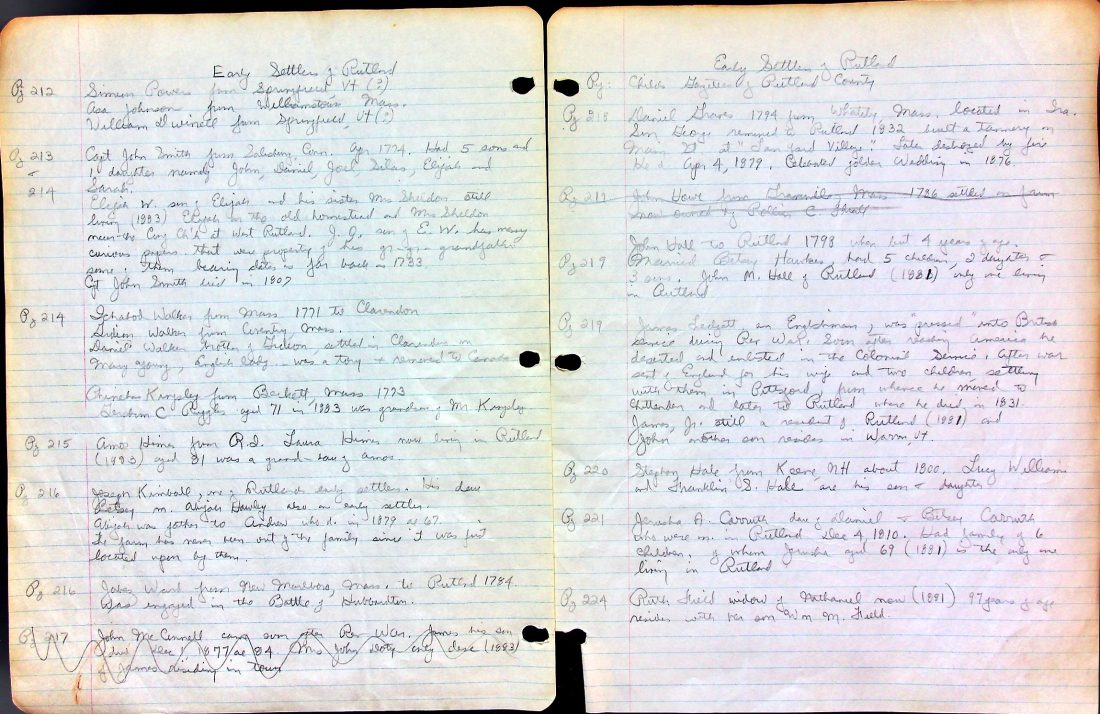 Early Settlers of Rutland
Pg 212 Simeon Powers from Springfield, Vt (?)
Asa Johnson from Williamstown Mass.
William Gwinell from Springfield, Vt (?)
Pg 213 Capt John Smith from Salisbury, Conn. Apr 1774. Had 5 sons and
& 1 daughter namely John, Daniel, Joel, Silas, Elijah and
214 Sarah.
Elijah W. son of Elijah, and his sister Mrs Sheldon still
living (1883) Elijah on the old homestead and Mrs Sheldon
near the Cong Ch'h at West Rutland. J. J., son of E. W. has many
curious papers that were property of his gr-gr-grandfather
some of them bearing dates as far back as 1733.
Cpt John Smith died in 1807
Pg 214 Ichabod Walker from Mass 1771 to Clarendon
Gideon Walker from Coventry Mass.
Daniel Walker brother of Gideon, settled in Clarendon m
Mary Young, English lady - was a tory & removed to Canada
Phinehas Kingsley from Beckett, Mass 1773
Gershom C. Ruggles aged 71 in 1883 was grandson of Mr. Kingsley
Pg 215 Amos Himes from R.I. Laura Himes now living in Rutland
(1883) aged 81 was a grand-dau of Amos
Pg 216 Joseph Kimball, one of Rutlands early settlers. His dau
Betsey m. Abijah Hawley also an early settler.
Abijah was father to Andrew who d. in 1879 ae 67.
The farm has never been out of the family since it was first
located upon by them.
Pg 216 Jabez Ward from New Marlboro, Mass. to Rutland 1784.
Was engaged in the Battle of Hubbardton.
Pg 217 John McConnell came soon after Rev War. James his son
died Dec 1 1877 ae 84 Mrs John Doty only desc (1883)
of James residing in town
Early Settlers of Rutland
Pg: Childs Gazetteer of Rutland County
Pg 218 Daniel Graves 1794 from Whately, Mass. located in Ira.
Son George removed to Rutland 1832 built a tannery on
Main St at "Tan Yard Village". Later destroyed by fire
He d. Apr 4, 1879. Celebrated golden Wedding in 1876
Pg 219 John Howe from Mass 1786 settled on farm
now owned by Rollin C Thrall
John Hall to Rutland 1798 when but 4 years of age.
Pg 219 Married Betsey Hawkes, had 5 children, 2 daughters &
3 sons. John M. Hall of Rutland (1881) only one living
in Rutland
Pg 219 James an Englishman, was "pressed" into British
service during Rev War. Soon after reaching America he
deserted and enlisted in the Colonial Service. After war
sent to England for his wife and two children settling
with them in Pittsford from whence he moved to
Chittenden and later to Rutland where he died in 1831.
James, Jr. still a resident of Rutland (1881) and
John another son resides in Warren Vt.
Pg 220 Stephen Hale from Keene NH about 1800. Lucy Williams
and Franklin S. Hale are his son & daughter
Pg 221 Jerusha A. Carruth dau of Daniel & Betsey Carruth
who were m. in Rutland Dec 4, 1810. Had family of 6
children, of whom Jerusha aged 69 (1881) is the only one
living in Rutland
Pg 224 Ruth Field widow of Nathaniel now (1881) 97 years of age
resides with her son Wm M. Field.